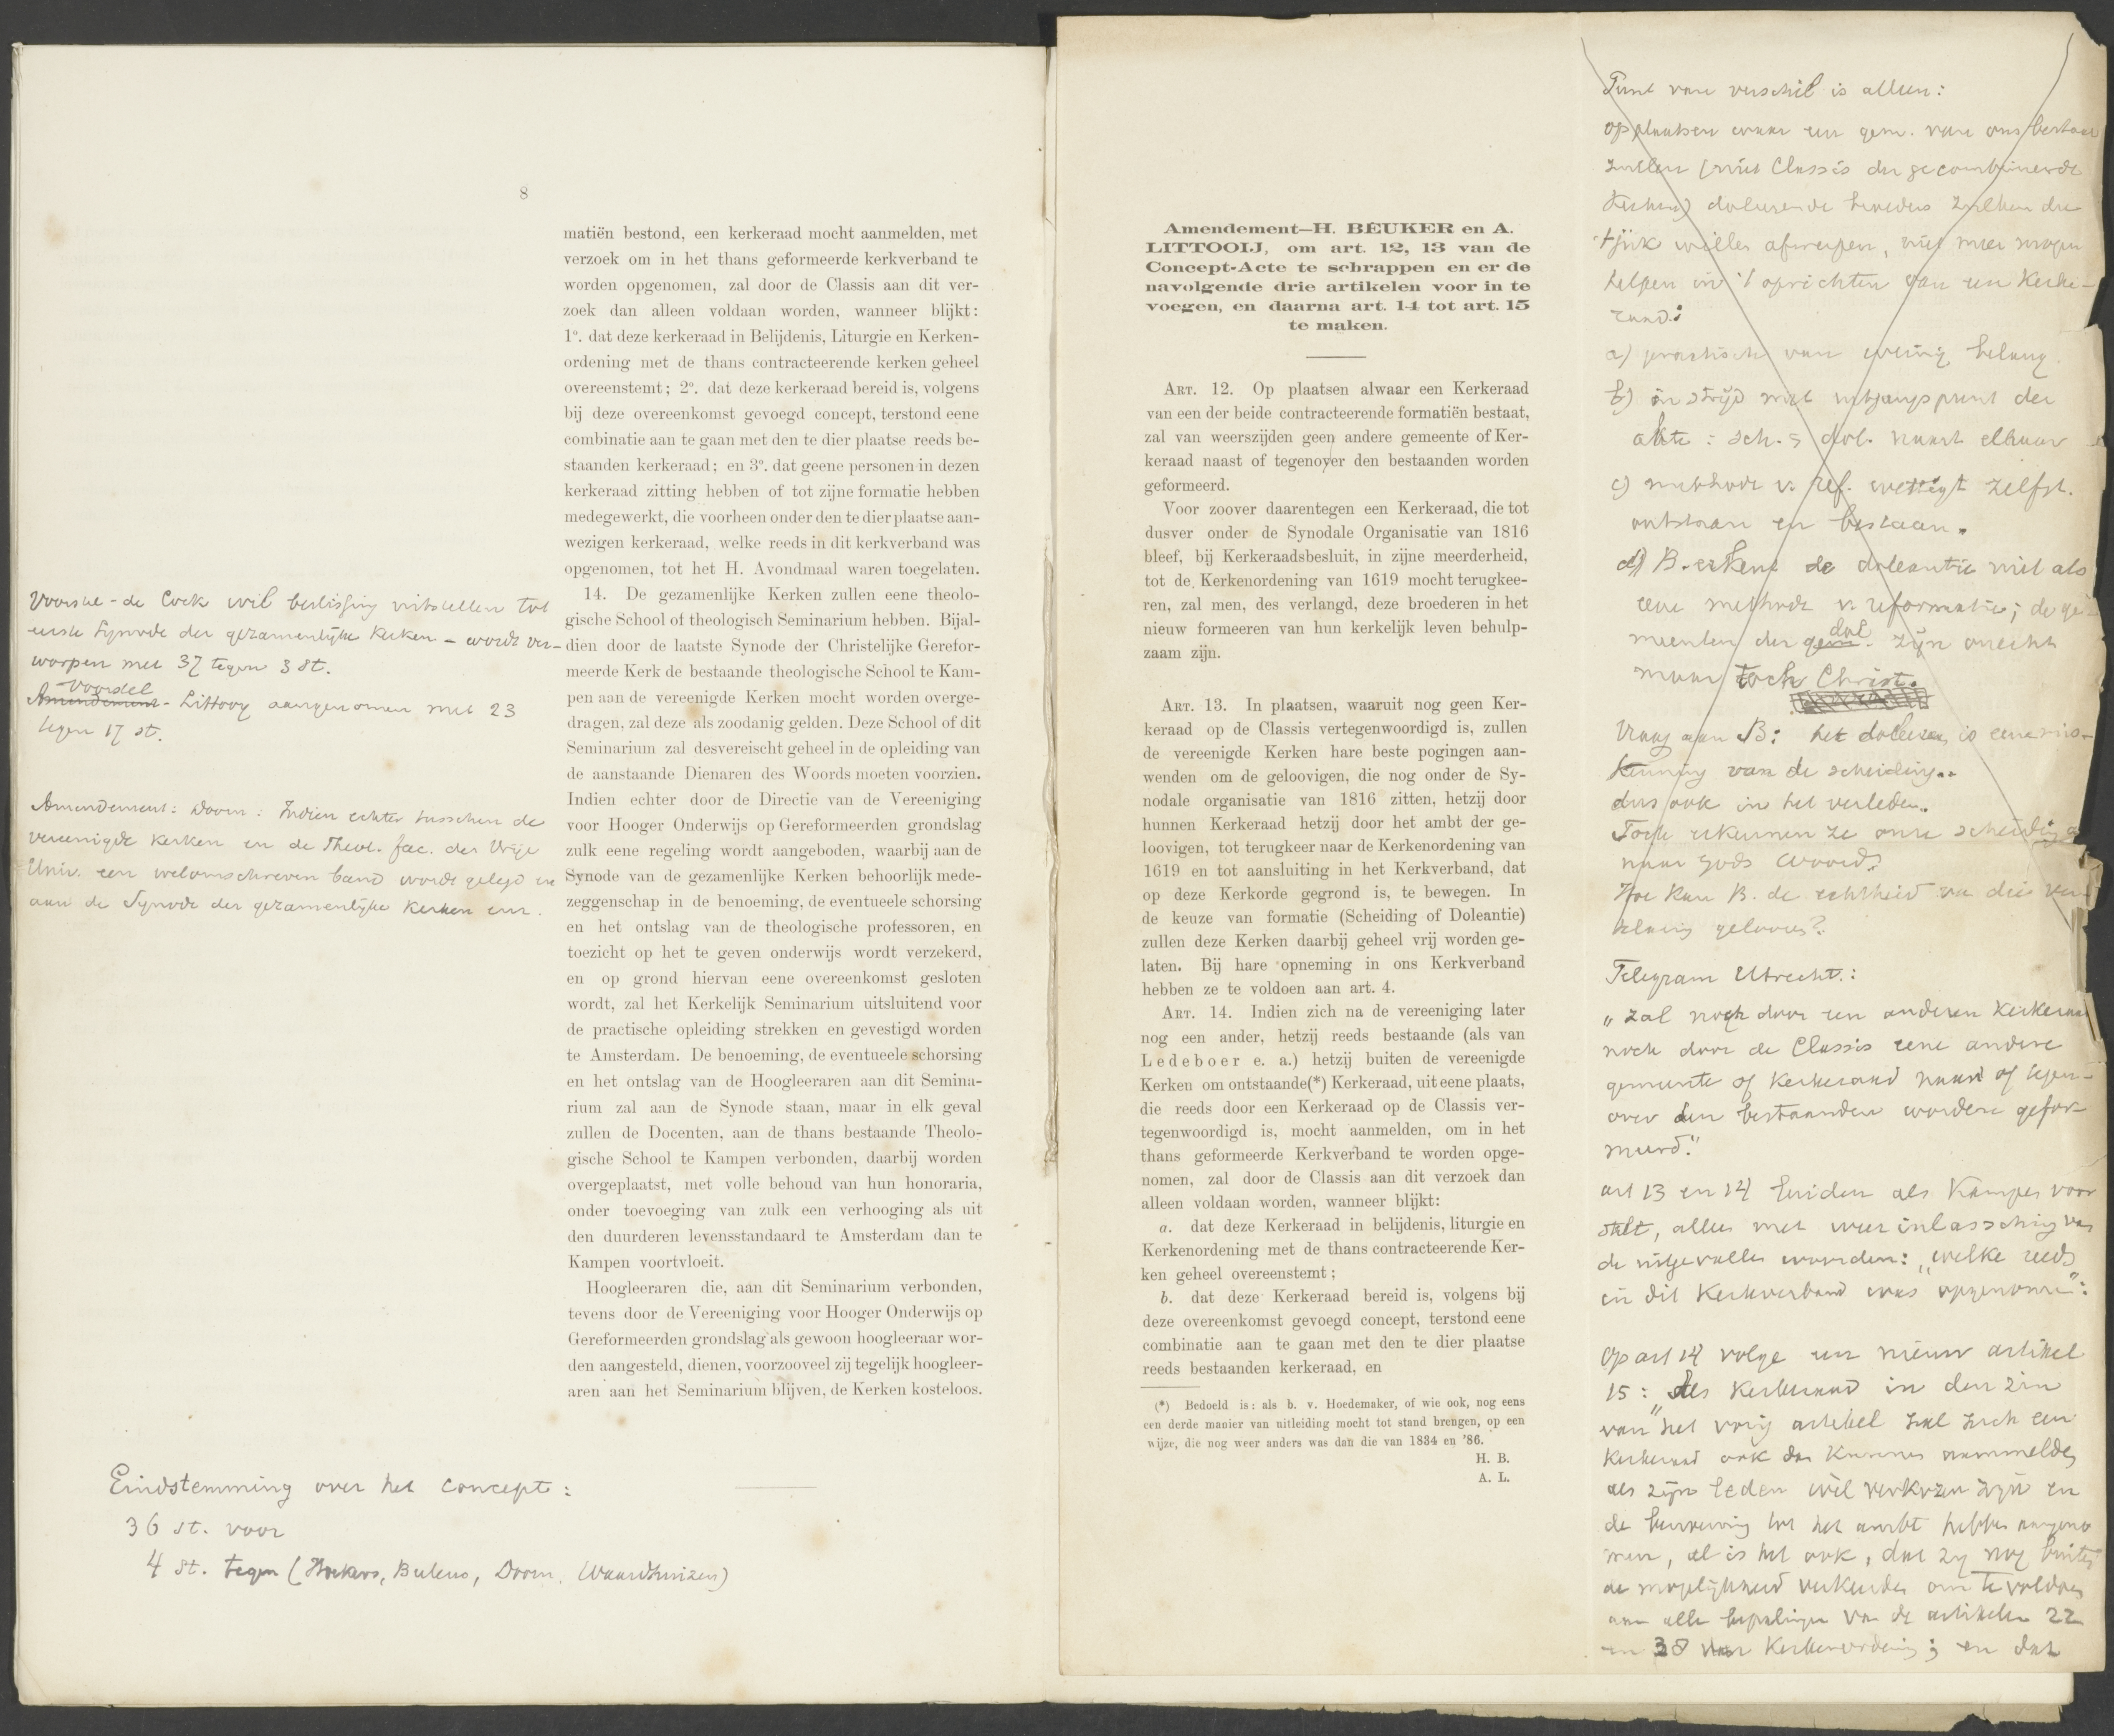 8
matiën bestond, een kerkeraad mocht aanmelden, met
verzoek om in het thans geformeerde kerkverband te
worden opgenomen, zal door de Classis aan dit ver-
zoek dan alleen voldaan worden, wanneer blijkt:
1º. dat deze kerkeraad in Belijdenis, Liturgie en Kerken-
ordening met de thans contracteerende kerken geheel
overeenstemt; 2º. dat deze kerkeraad bereid is, volgens
bij deze overeenkomst gevoegd concept, terstond eene
combinatie aan te gaan met den te dier plaatse reeds be-
staanden kerkeraad; en 3º. dat geene personen in dezen
kerkeraad zitting hebben of tot zijne formatie hebben
medegewerkt, die voorheen onder den te dier plaatse aan-
wezigen kerkeraad, welke reeds in dit kerkverband was
opgenomen, tot het H. Avondmaal waren toegelaten.
14. De gezamenlijke Kerken zullen eene theolo-
gische School of theologisch Seminarium hebben. Bijal-
dien door de laatste Synode der Christelijke Gerefor-
meerde Kerk de bestaande theologische School te Kam-
pen aan de vereenigde Kerken mocht worden overge-
dragen, zal deze als zoodanig gelden. Deze School of dit
Seminarium zal desvereischt geheel in de opleiding van
de aanstaande Dienaren des Woords moeten voorzien.
Indien echter door de Directie van de Vereeniging
voor Hooger Onderwijs op Gereformeerden grondslag
zulk eene regeling wordt aangeboden, waarbij aan de
Synode van de gezamenlijke Kerken behoorlijk mede-
zeggenschap in de benoeming, de eventueele schorsing
en het ontslag van de theologische professoren, en
toezicht op het te geven onderwijs wordt verzekerd,
en op grond hiervan eene overeenkomst gesloten
wordt, zal het Kerkelijk Seminarium uitsluitend voor
de practische opleiding strekken en gevestigd worden
te Amsterdam. De benoeming, de eventueele schorsing
en het ontslag van de Hoogleeraren aan dit Semina-
rium zal aan de Synode staan, maar in elk geval
zullen de Docenten, aan de thans bestaande Theolo-
gische School te Kampen verbonden, daarbij worden
overgeplaatst, met volle behoud van hun honoraria,
onder toevoeging van zulk een verhooging als uit
den duurderen levensstandaard te Amsterdam dan te
Kampen voortvloeit.
Hoogleeraren die, aan dit Seminarium verbonden,
tevens door de Vereeniging voor Hooger Onderwijs op
Gereformeerden grondslag als gewoon hoogleeraar wor-
den aangesteld, dienen, voorzooveel zij tegelijk hoogleer-
aren aan het Seminarium blijven, de Kerken kosteloos.
Voorstel - de Cock wil beslissing uitstellen tot
eerste Synode der gezamenlijke Kerken - wordt ver-
worpen met 37 tegen 3 st.
Voorstel
Amendement - Littooy aangenomen met 23
tegen 17 st.
Amendement: Doorn: Indien echter tusschen de
vereenigde Kerken en de Theol. fac. der Vrije
Univ. een welomschreven band wordt gelegd en
aan de Synode der gezamenlijke Kerken enz.
Eindstemming over het concept:
36 st. voor
4 st. tegen (Beukers, Bulens, Doorn, Waardhuizen)
Amendement—H. BEUKER en A.
LITTOOIJ, om art. 12, 13 van de
Concept-Acte te schrappen en er de
navolgende drie artikelen voor in te
voegen, en daarna art. 14 tot art. 15
te maken.
Art. 12. Op plaatsen alwaar een Kerkeraad
van een der beide contracteerende formatiën bestaat,
zal van weerszijden geen andere gemeente of Ker-
keraad naast of tegenover den bestaanden worden
geformeerd.
Voor zoover daarentegen een Kerkeraad, die tot
dusver onder de Synodale Organisatie van 1816
bleef, bij Kerkeraadsbesluit, in zijne meerderheid,
tot de Kerkenordening van 1619 mocht terugkee-
ren, zal men, des verlangd, deze broederen in het
nieuw formeeren van hun kerkelijk leven behulp-
zaam zijn.
Art. 13. In plaatsen, waaruit nog geen Ker-
keraad op de Classis vertegenwoordigd is, zullen
de vereenigde Kerken hare beste pogingen aan-
wenden om de geloovigen, die nog onder de Sy-
nodale organisatie van 1816 zitten, hetzij door
hunnen Kerkeraad hetzij door het ambt der ge-
loovigen, tot terugkeer naar de Kerkenordening van
1619 en tot aansluiting in het Kerkverband, dat
op deze Kerkorde gegrond is, te bewegen. In
de keuze van formatie (Scheiding of Doleantie)
zullen deze Kerken daarbij geheel vrij worden ge-
laten. Bij hare opneming in ons Kerkverband
hebben ze te voldoen aan art. 4.
Art. 14. Indien zich na de vereeniging later
nog een ander, hetzij reeds bestaande (als van
Ledeboer e. a.) hetzij buiten de vereenigde
Kerken om ontstaande(*) Kerkeraad, uit eene plaats,
die reeds door een Kerkeraad op de Classis ver-
tegenwoordigd is, mocht aanmelden, om in het
thans geformeerde Kerkverband te worden opge-
nomen, zal door de Classis aan dit verzoek dan
alleen voldaan worden, wanneer blijkt:
a. dat deze Kerkeraad in belijdenis, liturgie en
Kerkenordening met de thans contracteerende Ker-
ken geheel overeenstemt;
b. dat deze Kerkeraad bereid is, volgens bij
deze overeenkomst gevoegd concept, terstond eene
combinatie aan te gaan met den te dier plaatse
reeds bestaanden kerkeraad, en
(*) Bedoeld is: als b. v. Hoedemaker, of wie ook, nog eens
een derde manier van uitleiding mocht tot stand brengen, op een
wijze, die nog weer anders was dan die van 1834 en '86.
H. B.
A. L.
Punt van verschil is alleen:
op plaatsen waar een gem. van ons bestaat
zullen (mits Classis der gecombineerde
Kerken) doleerende broeders zullen die
't juk willen afwerpen, niet meer mogen
helpen in 't oprichten van een Kerke-
raad:
a) practisch van weinig belang.
b) in strijd met uitgangspunt der
akte: sch. = dol. naast elkaar
c) methode v. ref. wettigt zelfst.
ontstaan en bestaan.
d) B. erkent de doleantie niet als
eene methode v. reformatie; de ge-
meenten der dol. zijn onecht
maar toch Christ.
Vraag aan B: het doleeren is eene mis-
kenning van de scheiding.
dus ook in het verleden.
Toch erkennen ze onze scheiding
naar gods woord?
Hoe kan B. de echtheid van die ver-
klaring gelooven?
Telegram Utrecht.:
„zal noch door een anderen Kerkeraad
noch door de Classis eene andere
gemeente of Kerkeraad naast of tegen-
over den bestaanden worden gefor-
meerd."
art 13 en 14 luiden als Kampen voor
stelt, alles met weer inlassching van
de uitgevallen woorden: „welke reeds
in dit Kerkverband was opgenomen":
Op art 14 volge een nieuw artikel
15: „Als Kerkeraad in den zin
van het vorig artikel zal zich een
Kerkeraad ook dan kunnen aanmelden
als zijn leden wel verkozen zijn en
de benoeming tot het ambt hebben aangeno
men, al is het ook, dat zij nog buiten
de mogelijkheid verkeerden om te voldoen
aan alle bepalingen van de artikelen 22
en 38 der Kerkenordening; en dat